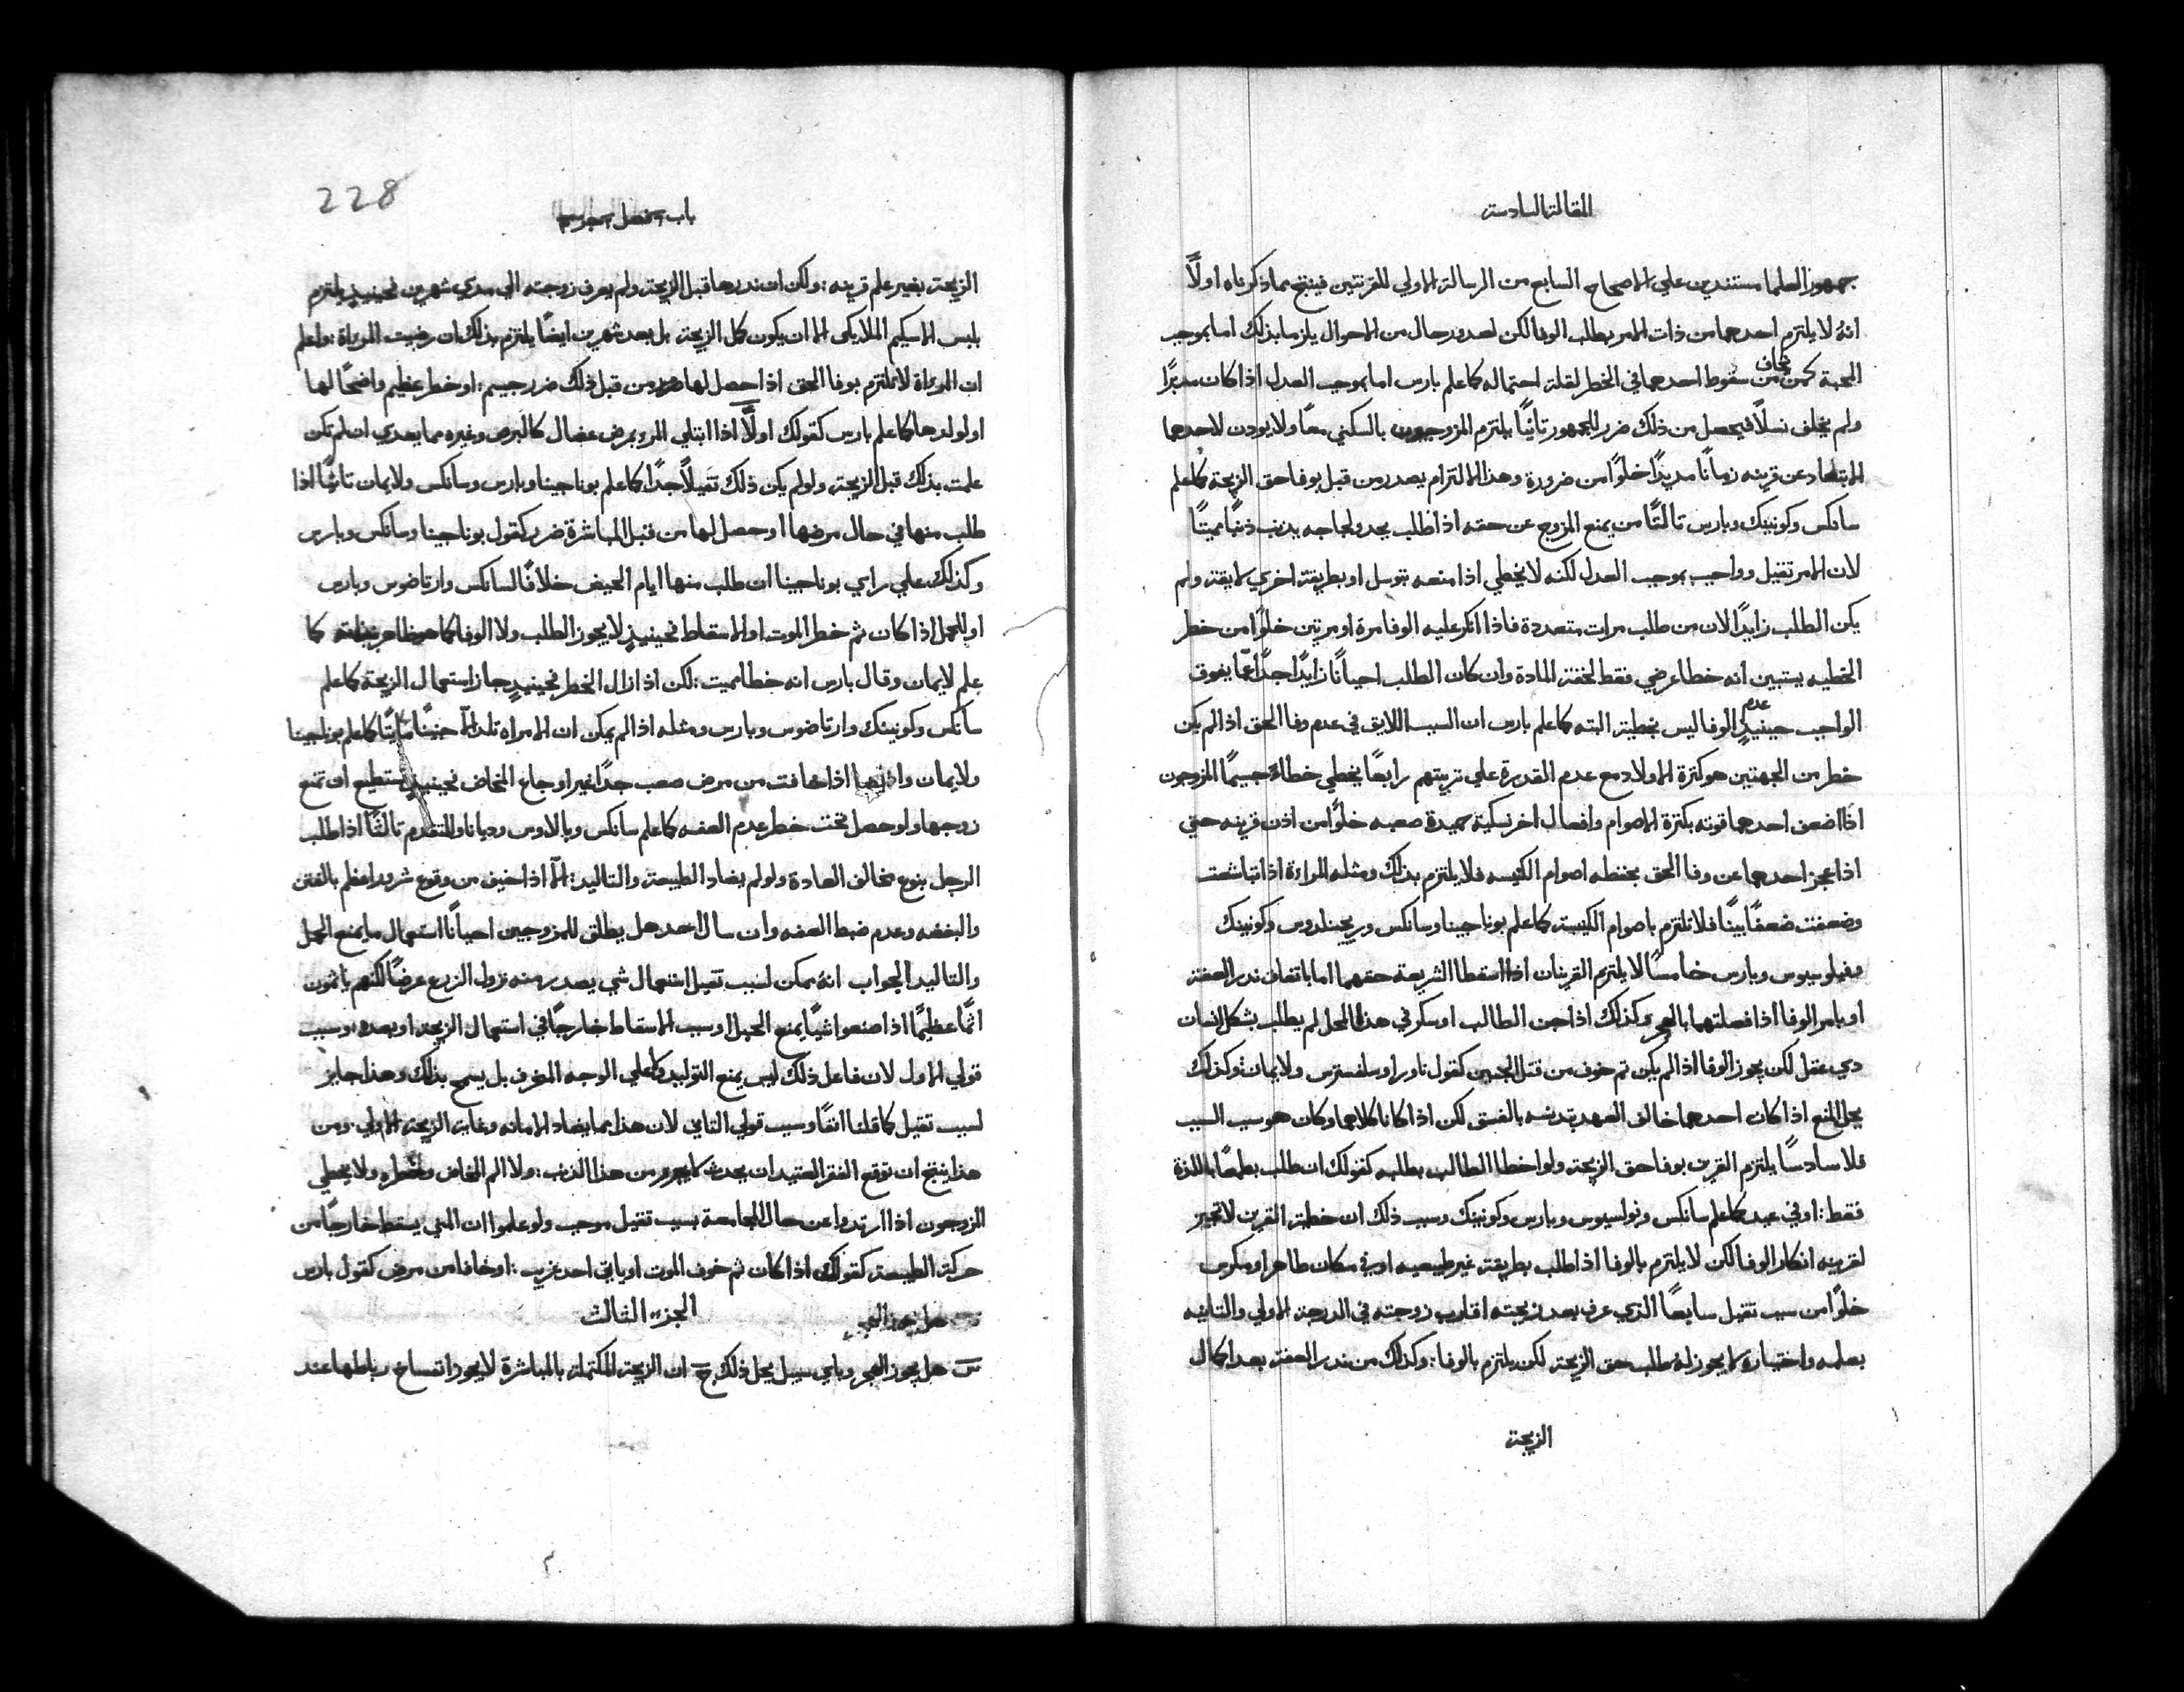 المقالة السادسة
جمهور العلما مستندين علي الاصحاح السابع من الرسالة الاولي للقرنتيين فينتج مما ذكرناه اولًا
انهُ لا يلتزم احدهما من ذات الامر بطلب الوفا لكن لصدور حال من الاحوال يلزما بذلك اما بموجب
المحبة كمن يخاف من سقوط احدهما في الخطر لقلة احتماله كما علم بارس اما بموجب العدل اذا كان مدبرًا
ولم يخلف نسلًا فيحصل من ذلك ضرر للجمهور ثانيًا يلتزم المزوجون بالسكني معًا ولا يودن لاحدهما
الابتعاد عن قرينه زمانًا مديدًا خلوًا من ضرورة وهذا الالتزام يصدر من قبل بوفا حق الزيجة كما علم
سانكس وكونينك وبارس ثالثًا من يمنع المزوج عن حقه اذا طلب بجد ولجاجه يدنب ذنبًا مميتًا
لان الامر ثقيل وواجب بموجب العدل لكنه لا يخطي اذا منعه بتوسل او بطريقة اخري لايقة ولم
يكن الطلب زايدًا لان من طلب مرات متعددة فاذا انكر عليه الوفا مرة او مرتين خلوًا من خطر
الخطيه يستبين انه خطا عرضي فقط لخفة المادة وان كان الطلب احيانًا زايدًا جدًا عمّا يفوق
الواجب حينيدٍ عدم الوفا ليس بخطية البته كما علم بارس ان السبب اللايق في عدم وفا الحق اذا لم يكن
خطر من الجهتين هو كثرة الاولاد مع عدم القدرة علي تربيتهم رابعًا يخطي خطاً جسيمًا المزوجون
اذا اضعف احدهما قوته بكثرة الاصوام وافعال اخر نسكية حميدة صعبه خلوًا من اذن قرينه حتي
اذا عجز احدهما عن وفا الحق بحفظه اصوام الكنيسه فلا يلتزم بذلك ومثله المراءة اذا تباشعت
وضعفت ضعفًا بينًا فلا تلتزم باصوام الكنيسة كما علم بوناجينا وسانكس وريجينلدوس وكونينك
وفيلوسيوس وبارس خامسًا لا يلتزم القرينان اذا اسقطا الشريعة حقهما اما باتفاق ندر العفة
او بامر الوفا اذا فصلتهما بالهجر وكذلك اذا جن الطالب او سكر في هذا المحل لم يطلب بشكل انسان
دي عقل لكن يجوز الوفا اذا لم يكن ثم خوف من قتل الجنين كقول ناورا وسلفسترس ولايمان وكذلك
يحل المنع اذا كان احدهما خالف العهد بتدنسه بالفسق لكن اذا كانا كلاهما وكان هو سبب السبب
فلا سادسًا يلتزم القرين بوفا حق الزيجة ولو اخطا الطالب بطلبه كقولك ان طلب بطمعًا باللذة
فقط: او في عيد كما علم سانكس وبارس وكونينك وسبب ذلك ان خطية القرين لا تجيز
لقرينه انكار الوفا لكن لا يلتزم بالوفا اذا طلب بطريقة غير طبيعيه او في مكان طاهر او مكرس
خلوًا من سبب ثقيل سابعًا الذي عرف بعد زيجته اقارب زوجته في الدرجة الاولي والثانيه
بعلمه واختياره لا يجوز لهُ طلب حق الزيجة لكن يلتزم بالوفا: وكذلك من ندر العفة بعد اكمال
الزيجة
228
الزيجة بغير علم قرينه: ولكن ان ندرها قبل الزيجة ولم يعرف زوجته الي مدي شهرين فحينيذٍ يلتزم
بلبس الاسكيم الملايكي الا ان يكون كمل الزيجة بل بعد شهرين ايضًا يلتزم بذلك ان رضيت المراة: واعلم
ان المراة لا تلتزم بوفا الحق اذا حصل لها من قبل ذلك ضرر جسيم: او خطر عظيم واضحًا لها
او لولدها كما علم بارس كقولك اولًا اذا ابتلي المرو بمرض عضال كالبرص وغيره مما يعدي ان لم تكن
علمت بذلك قبل الزيجة ولو لم يكن ذلك ثقيلًا جدًا كما علم بوناجينا وبارس وسانكس ولايمان ثانيًا اذا
طلب منها في حال مرضها او حصل لها من قبل المباشرة ضرر كقول بوناجينا وسانكس وبارس
وكذلك علي راي بوناجينا ان طلب منها ايام الحيض خلافًا لسانكس وارتاضوس وبارس
او للحمل اذا كان ثم خطر الموت او الاسقاط فحينيذٍ لا يجوز الطلب ولا الوفا كما
علم لايمان وقال بارس انه خطا مميت: لكن اذا زال الخطر فحينيدٍ جاز استعمال الزيجة كما علم
سانكس وكونينك وارتاضوس وبارس ومثله اذا لم يمكن ان المراه تلد الا جنينًا مايتًا كما علم بوناجينا
ولايمان اذا خافت من مرض صعب جدًا غير اوجاع المخاض فحينيذٍ تستطيع ان تمنع
زوجها ولو حصل تحت خطر عدم العفه كما علم سانكس وبالاوس وديانا والمتقدم ثالثًا اذا طلب
الرجل بنوع مخالف العادة ولو لم يضاد الطبيعة والتاليد: الا اذا خيف من وقوع شرور اعظم بالفتن
والبغضه وعدم ضبط العفه وان سال احد هل يطلق للمزوجين احيانًا استعمال ما يمنع الحمل
والتاليد الجواب انهُ ممكن لسبب ثقيل استعمال شي يصدر منه نزول الزرع عرضًا لكنهم ياثمون
اثمًا عظيمًا اذا صنعوا شيًا يمنع الحبل او سبب الاسقاط خارجًا في استعمال الزيجة او بعده: وسبب
قولي الاول لان فاعل ذلك ليس يمنع التوليد علي الوجه المغرف بل يسمح بذلك وهذا جايز
لسبب ثقيل كما قلنا انفًا وسبب قولي الثاني لان هذا مما يضاد الامانه وغاية الزيجة الاولي. ومن
هذا ينتج ان توقع الفقر العتيد ان يحدث لا يبرر من هذا الذنب: ولا الم المخاض ولا يخطي
الزوجون اذا ارتدوا عن حال المجامعة بسبب ثقيل موجب ولو علموا ان المني يسقط خارجًا من
حركة الطبيعة كقولك اذا كان ثم خوف الموت او ياتي احد غريب: او خافا من مرض كقول بارس
الجزء الثالث
س هل يجوز الهجر وباي سبيل يحل ذلك ج ان الزيجة المكتملة بالمباشرة لا يجوز انفساخ رباطها عند